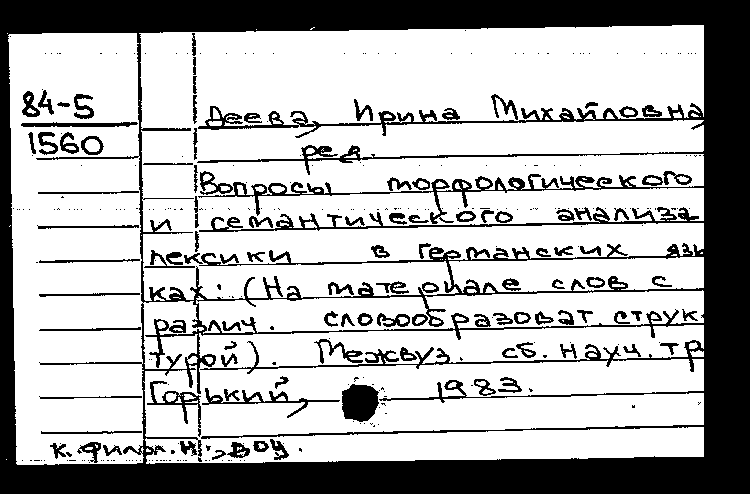 84-5
1560
Деева, Ирина Михайловна,
ред.
Вопросы морфологического
и семантического анализа
лексики в германских язы
ках: (На материале слов с
различ. словообразоват. струк-
турой). Межвуз. сб. науч. тр
Горький, 1983.
к. филол. н.,